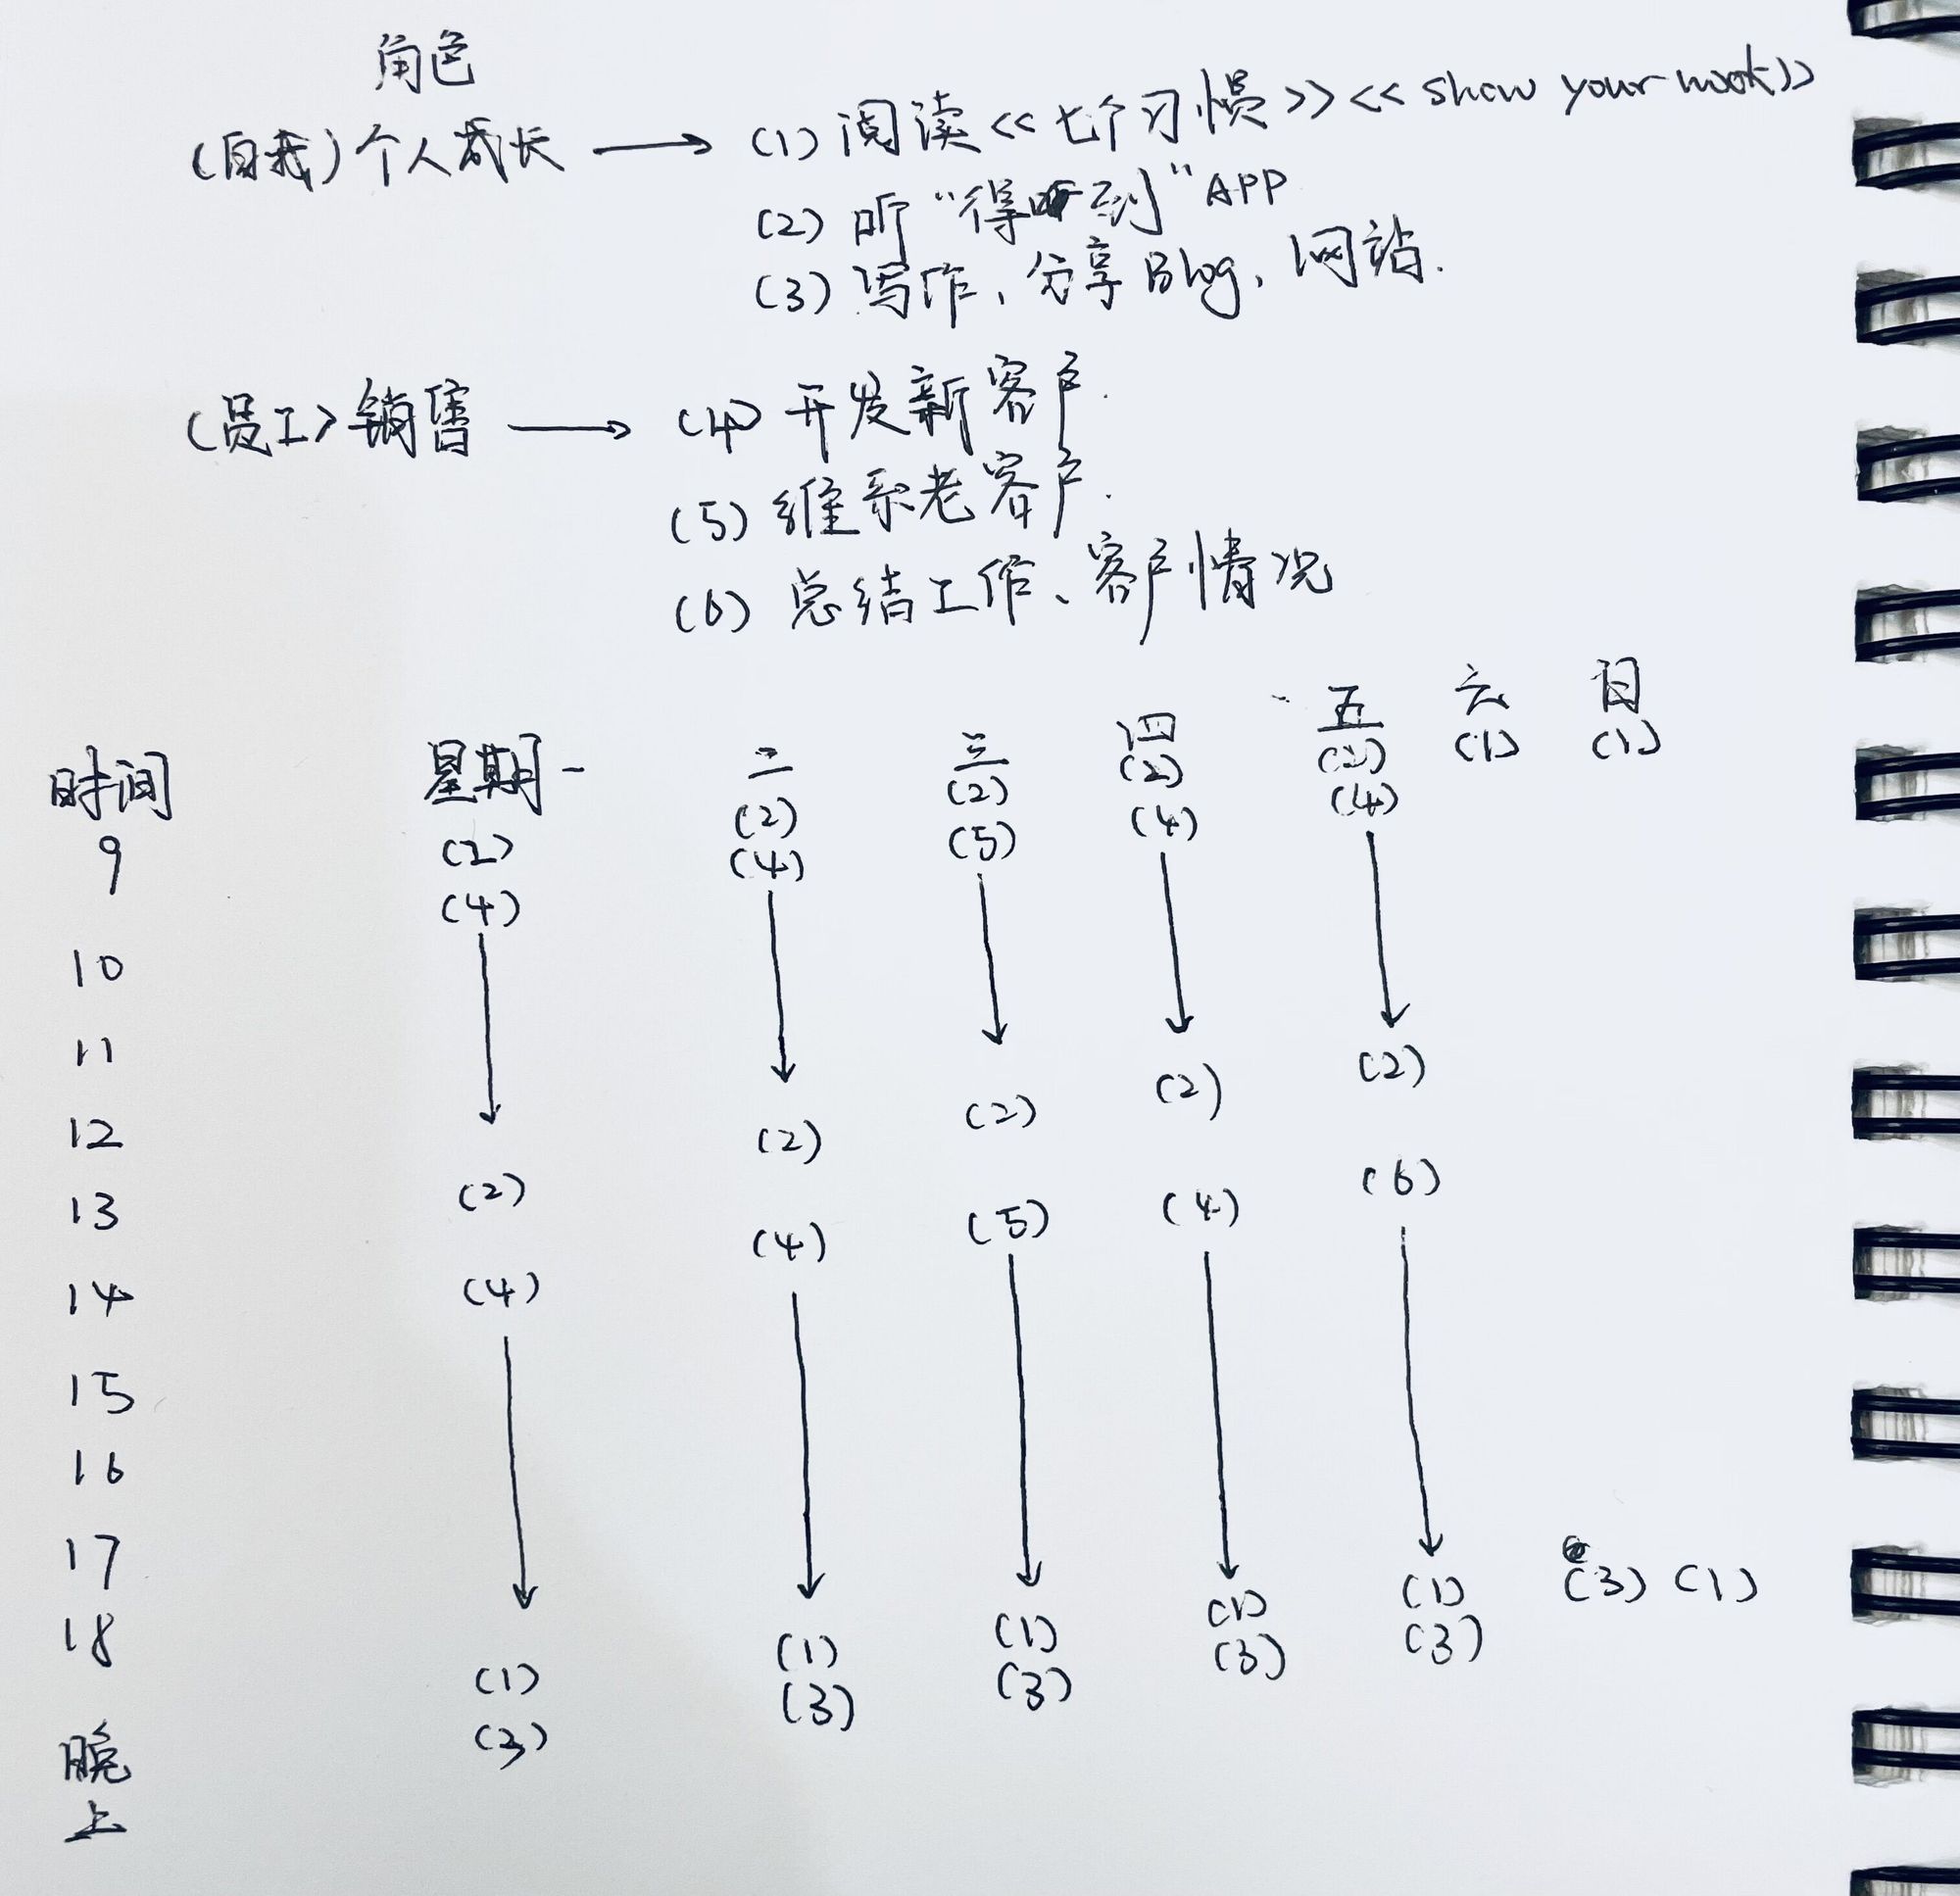 角色
(自我)个人成长 → (1) 阅读<<七个习惯>><<show your work>>
(2) 听"得到"APP
(3) 写作、分享Blog、网站.
(员工)销售 → (4) 开发新客户.
(5) 维系老客户.
(6) 总结工作、客户情况
时间 星期一 二 三 四 五 六 日
9 (2) (2) (2) (2) (2) (1) (1)
(4) (4) (5) (4) (4)
10
11
12
13 (2) (2) (2) (2) (2)
14 (4) (4) (5) (4) (6)
15
16
17
18
晚上 (1) (1) (1) (1) (1) (3) (1)
(3) (3) (3) (3) (3)